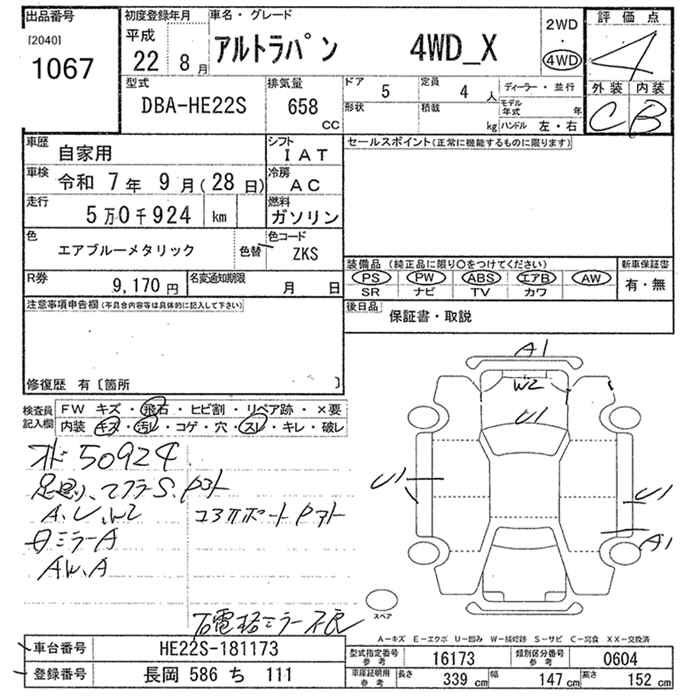 出品番号 初度登録年月 車名・グレード 評価点
[2040] 平成 2WD
1067 22 8月 アルトラパン 4WD_X 4WD 4
型式 排気量 ドア 5 定員 4人 ディーラー・並行 外装 内装
DBA-HE22S 658 CC 形状 積載 kg モデル年式 年 C B
ハンドル 左・右
車歴 自家用 シフト IAT セールスポイント(正常に機能するものに限ります)
車検 令和 7年 9月(28日) 冷房 AC
走行 5万0千924 km 燃料 ガソリン
色 エアブルーメタリック 色替 色コード ZKS
装備品 (純正品に限り○をつけてください) 新車保証書
R券 9,170円 名変通知期限 月 日 PS PW ABS エアB AW 有・無
SR ナビ TV カワ
注意事項申告欄(布具合内容等は具体的に記入して下さい) 後日品 保証書・取説
修復歴 有〔箇所 〕
検査員記入欄 FW キズ・飛石・ヒビ割・リペア跡・×要
内装 キズ・汚レ・コゲ・穴・スレ・キレ・破レ
A1
W2
U1
オド 50924
U1 U1
A1
A、U、W2
ミラーA
AW、A
電格ミラー不良
スペア
A-キズ E-エクボ U-凹み W-補修跡 S-サビ C-腐食 XX-交換済
車台番号 HE22S-181173 型式指定番号 参考 16173 類別区分番号 参考 0604
登録番号 長岡 586 ち 111 車庫証明用 参考 長さ 339 cm 幅 147 cm 高さ 152 cm